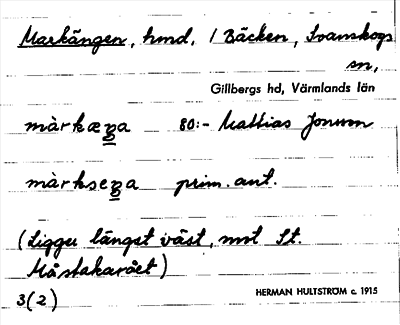 Markängen, hmd, 1 Bäcken, Svanskogs
sn,
Gillbergs hd, Värmlands län
màrkæŋa 80:- Mattias Jonsson
màrkseŋa prim. ant.
(Ligger längst väst, mot St.
)
3(2)
HERMAN HULTSTRÖM c. 1915